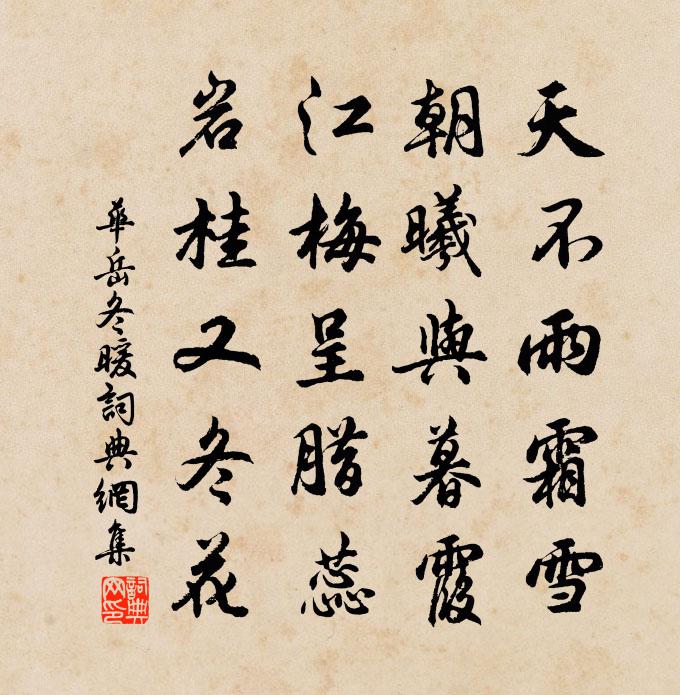 天不雨霜雪
朝曦與暮霞
江梅呈腊蕊
岩桂又冬花
華岳冬暖詞典網集
詞典網印